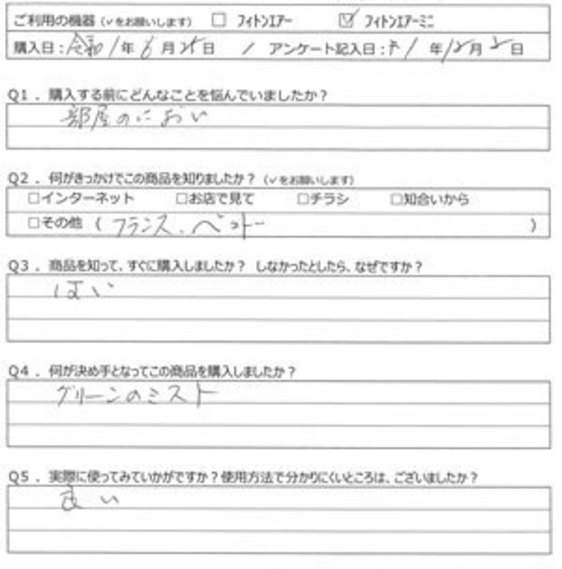 ご利用の機器（✓をお願いします） □ フィトンエアー ☑ フィトンエアーミニ
購入日：令和1年6月25日 / アンケート記入日：R1年12月2日
Q1．購入する前にどんなことを悩んでいましたか？
部屋のにおい
Q2．何がきっかけでこの商品を知りましたか？（✓をお願いします）
□インターネット □お店で見て □チラシ □知合いから
□その他（フランスベッド）
Q3．商品を知って、すぐに購入しましたか？ しなかったとしたら、なぜですか？
はい
Q4．何が決め手となってこの商品を購入しましたか？
グリーンのミスト
Q5．実際に使ってみていかがですか？使用方法で分かりにくいところは、ございましたか？
良い